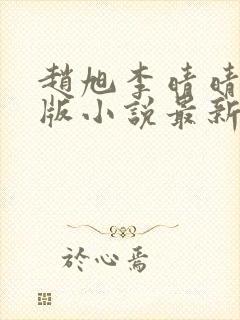 趙旭李晴晴
版小說最新
於心焉